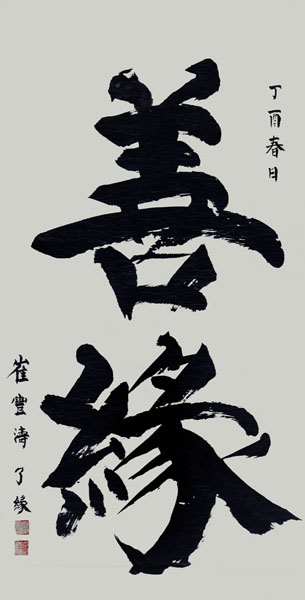 丁酉春日
善緣
崔豐濤了緣